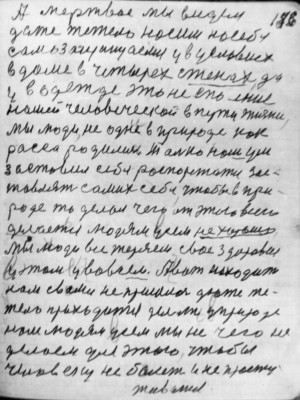 А мертвое мы видим 176
даже тяжело носим на себя
самозащищаемся в условиях
в доме в четырех стенах да
и в одежде это не спо
нашей человеческой в пути жизни,
мы люди не одне в природе как
раса родилися Только ном ум
заставил себя роспортати зас
тавлят самих себя, чтобы в при-
роде то делал чего от этого всего
делается людям усем не хорошо,
мы люди все теряем свое здоровья
у этом у вовсем. А вот находит
нам своими не пришлося даже тя-
тело приходится делат у природе
нам людям усем мы не чего не
делаем для этого, чтобы
человек у не болел и не простужывался